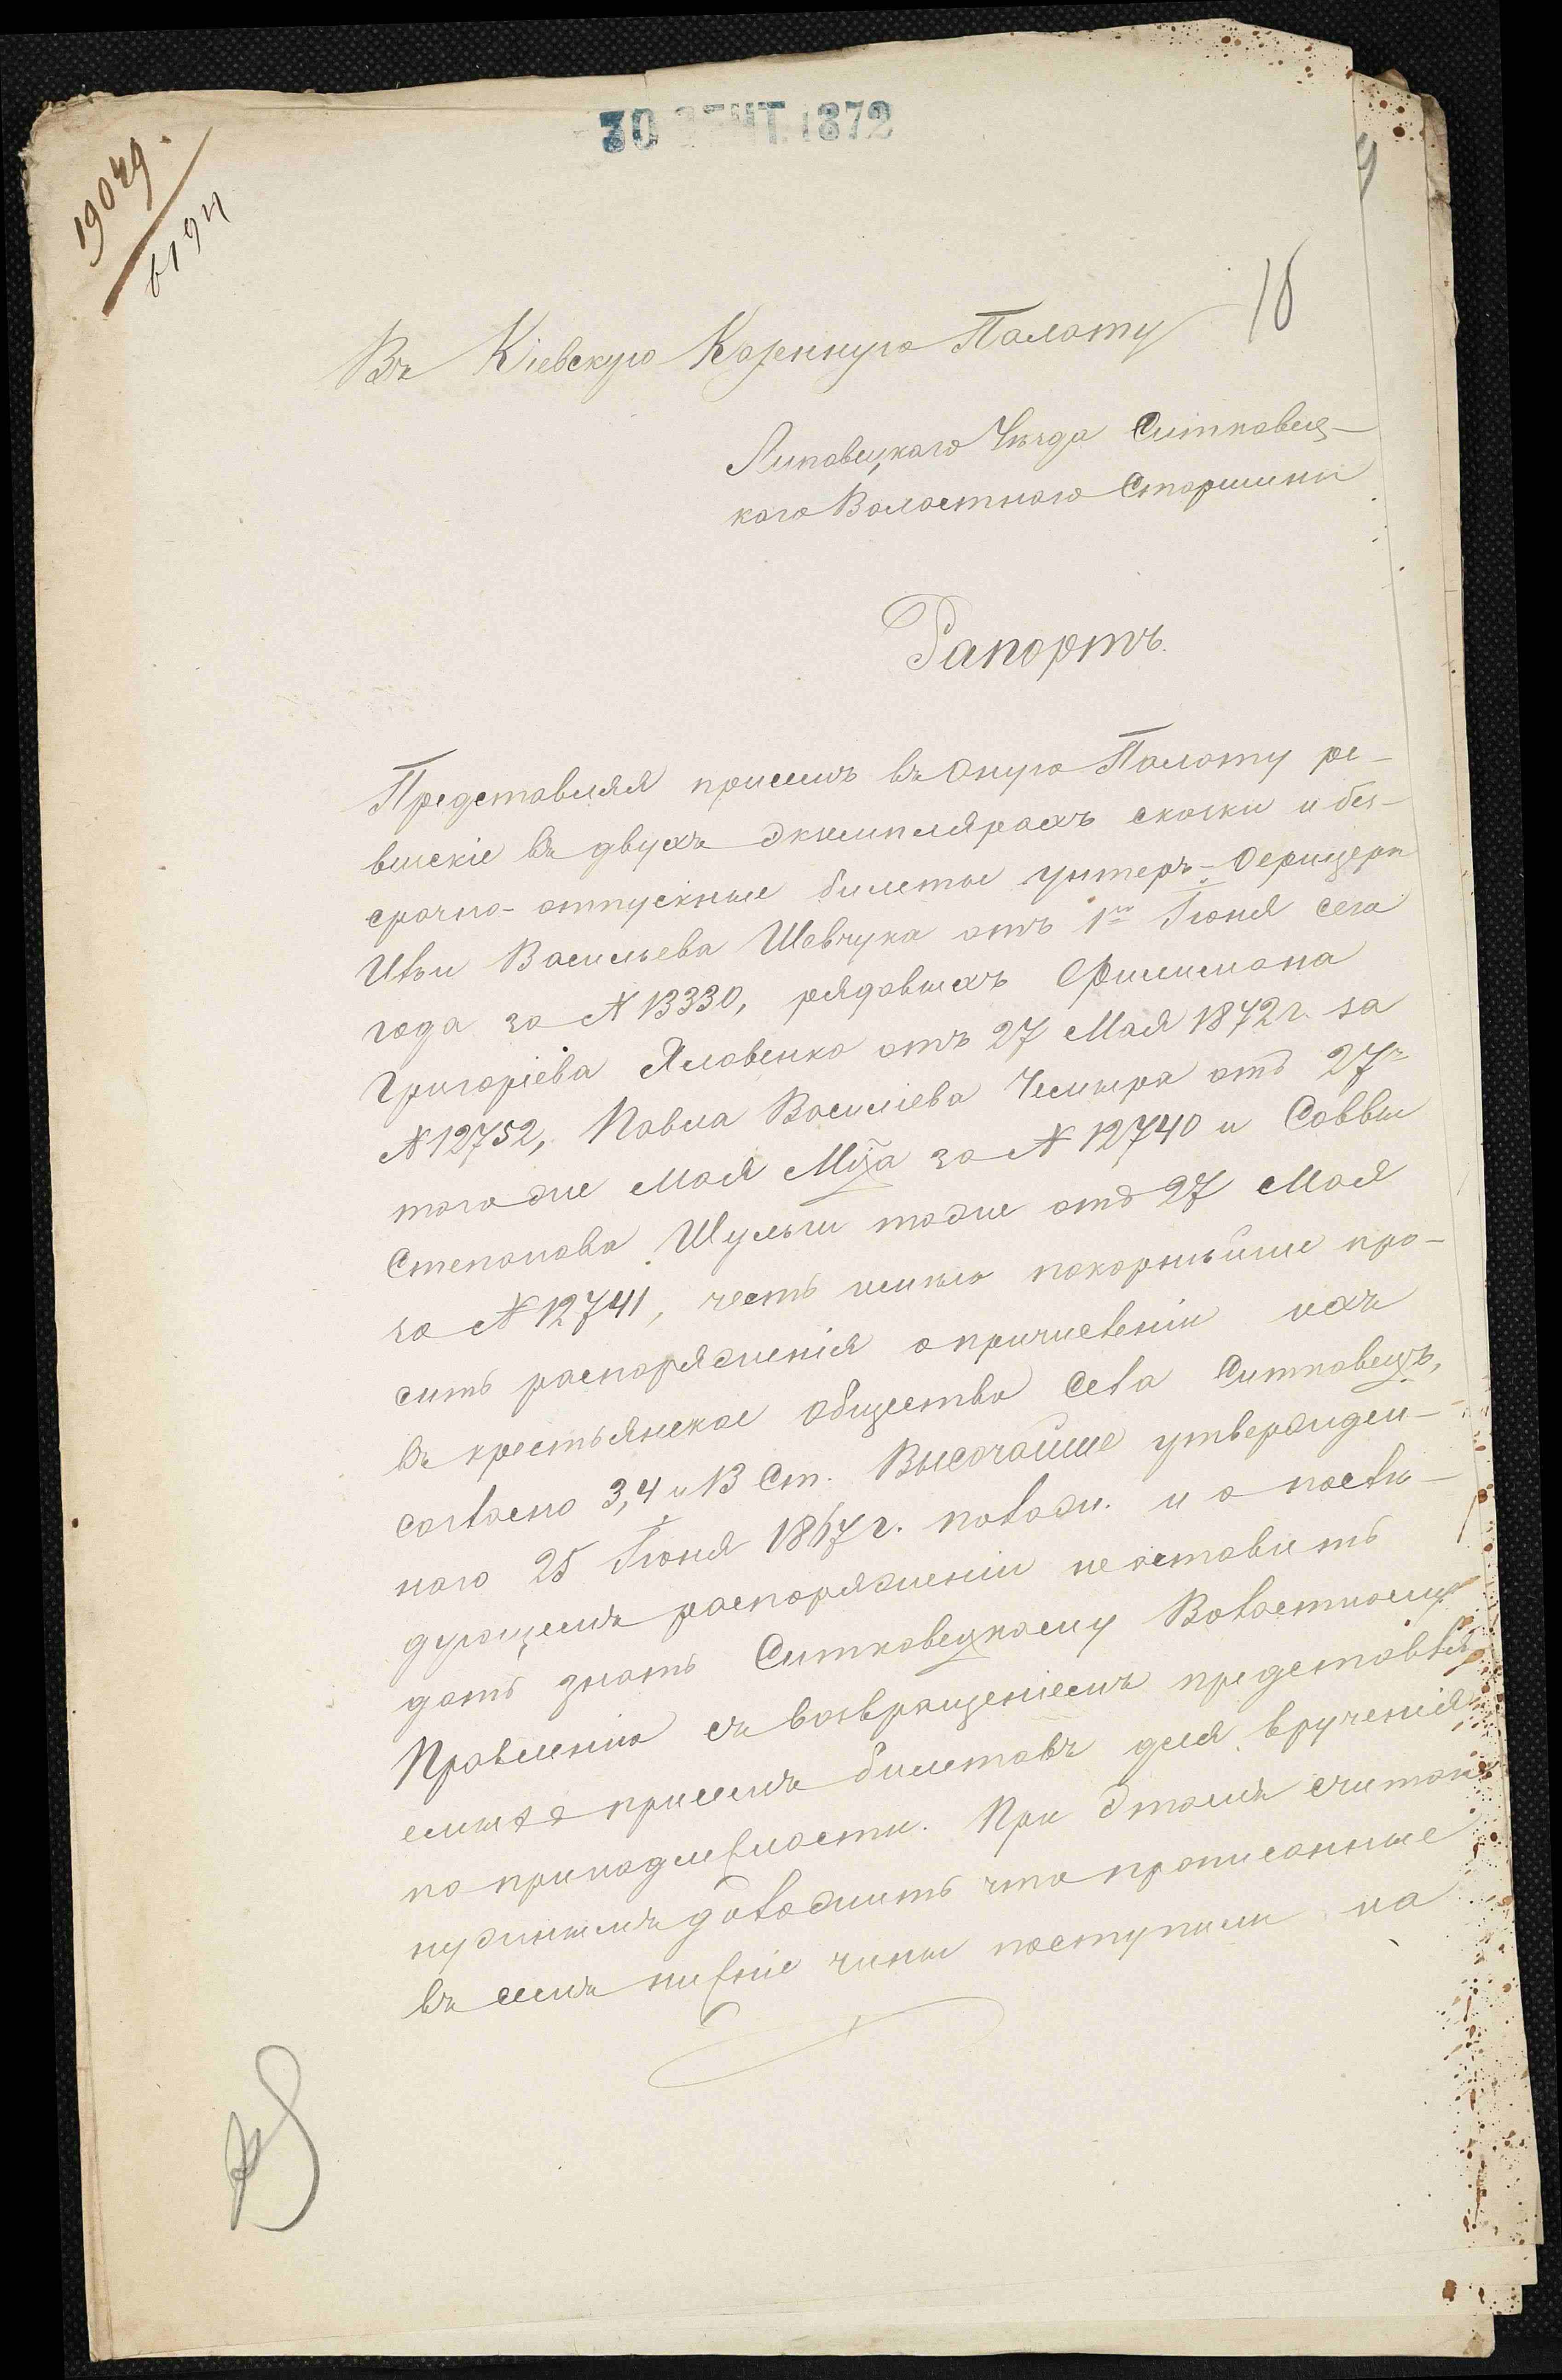 30 СЕНТ. 1872
19049
6194
9
18
Въ Кіевскую Казенную Палату
Липовецкаго Уѣзда Ситковец-
каго Волостнаго Старшины
Рапортъ.
Представляя присемъ въ оную Палату ре-
вискіе въ двухъ экземплярахъ скаски и без-
срочно-отпускные билеты унтеръ-Офицера
Ильи Васильева Шевчука отъ 1го Іюня сего
года за № 13330, рядовыхъ Филимона
Григоріева Яловенко отъ 27 Мая 1872 г. за
№ 12752, Павла Василіева Чемира отъ 27
тогоже Мая Мца за № 12740 и Саввы
Степанова Шульги тоже отъ 27 Мая
за № 12741, честь имѣю покорнѣйше про-
сить распоряженія о причисленіи ихъ
въ крестьянское общество Села Ситковецъ,
согласно 3, 4 и 13 Ст. Высочайше утвержден-
наго 25 Іюня 1867 г. полож. и о послѣ-
дующемъ распоряженіи не оставить
дать знать Ситковецкому Волостному
Правленію съ возвращеніемъ представля
емыхъ присемъ билетовъ для врученія
по принадлежности. При этомъ считаю
нужнымъ доложить что прописанные
въ семъ нижніе чины поступили на